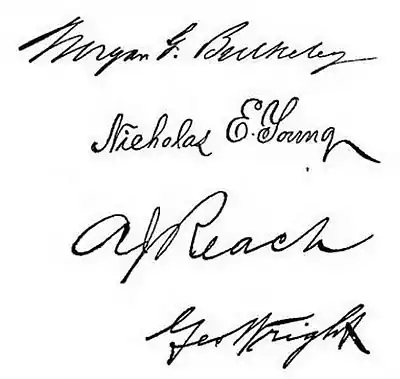 Morgan G. Bulkeley
Nicholas E. Young
A J Reach
Geo Wright